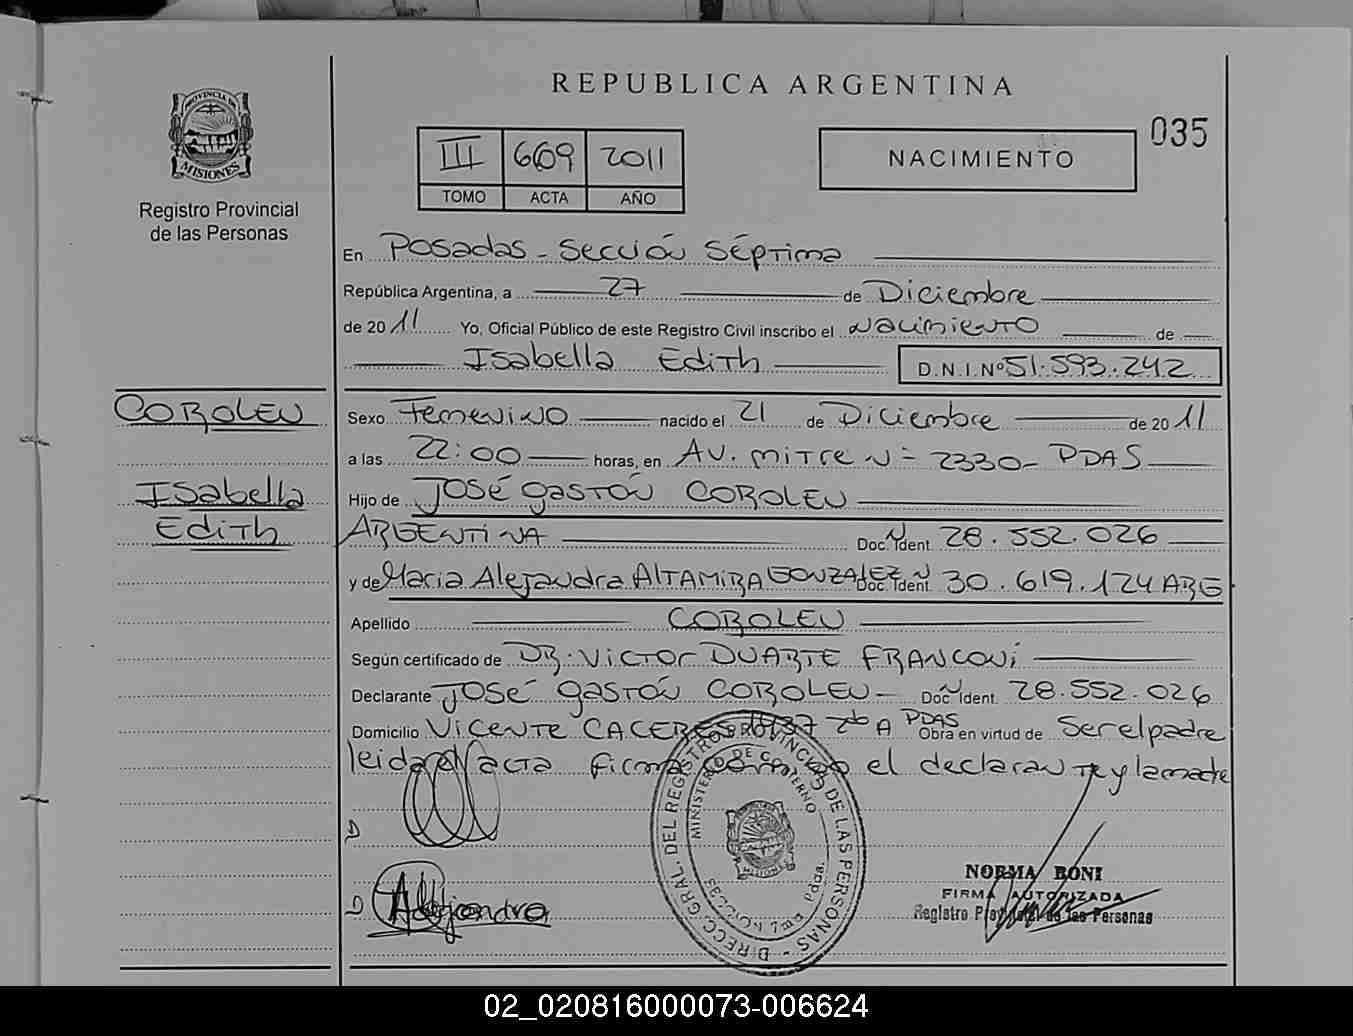 REPUBLICA ARGENTINA
035
PROVINCIA DE
MISIONES
Registro Provincial
de las Personas
III 609 2011
TOMO ACTA AÑO
NACIMIENTO
En Posadas - Sección Séptima
República Argentina, a 27 de Diciembre
de 2011 Yo, Oficial Público de este Registro Civil inscribo el Nacimiento de
Isabella Edith D.N.I.Nº 51.593.242
COROLEU
Isabella
Edith
Sexo Femenino nacido el 21 de Diciembre de 2011
a las 22:00 horas, en Av. Mitre N= 2330- PDAS
Hijo de José Gastón COROLEU
ARGENTINA Doc. Ident. N 28.552.026
y de Maria Alejandra ALTAMIRA GONZALEZ Doc. Ident. N 30.619.124 ARG
Apellido COROLEU
Según certificado de DR. VICTOR DUARTE FRANCONi
Declarante José Gastón COROLEU - Doc. Ident. N 28.552.026
Domicilio VICENTE CACERES 1937 7b A PDAS Obra en virtud de Ser el padre
leida el acta firma el declarante y la madre
D
D Alejandra
DIRECC. GRAL. DEL REGISTRO PROVINCIAL DE LAS PERSONAS -
MINISTERIO DE GOBIERNO
SECCION 7ma Pdas.
MISIONES
NORMA BONI
FIRMA AUTORIZADA
Registro Provincial de las Personas
02_020816000073-006624